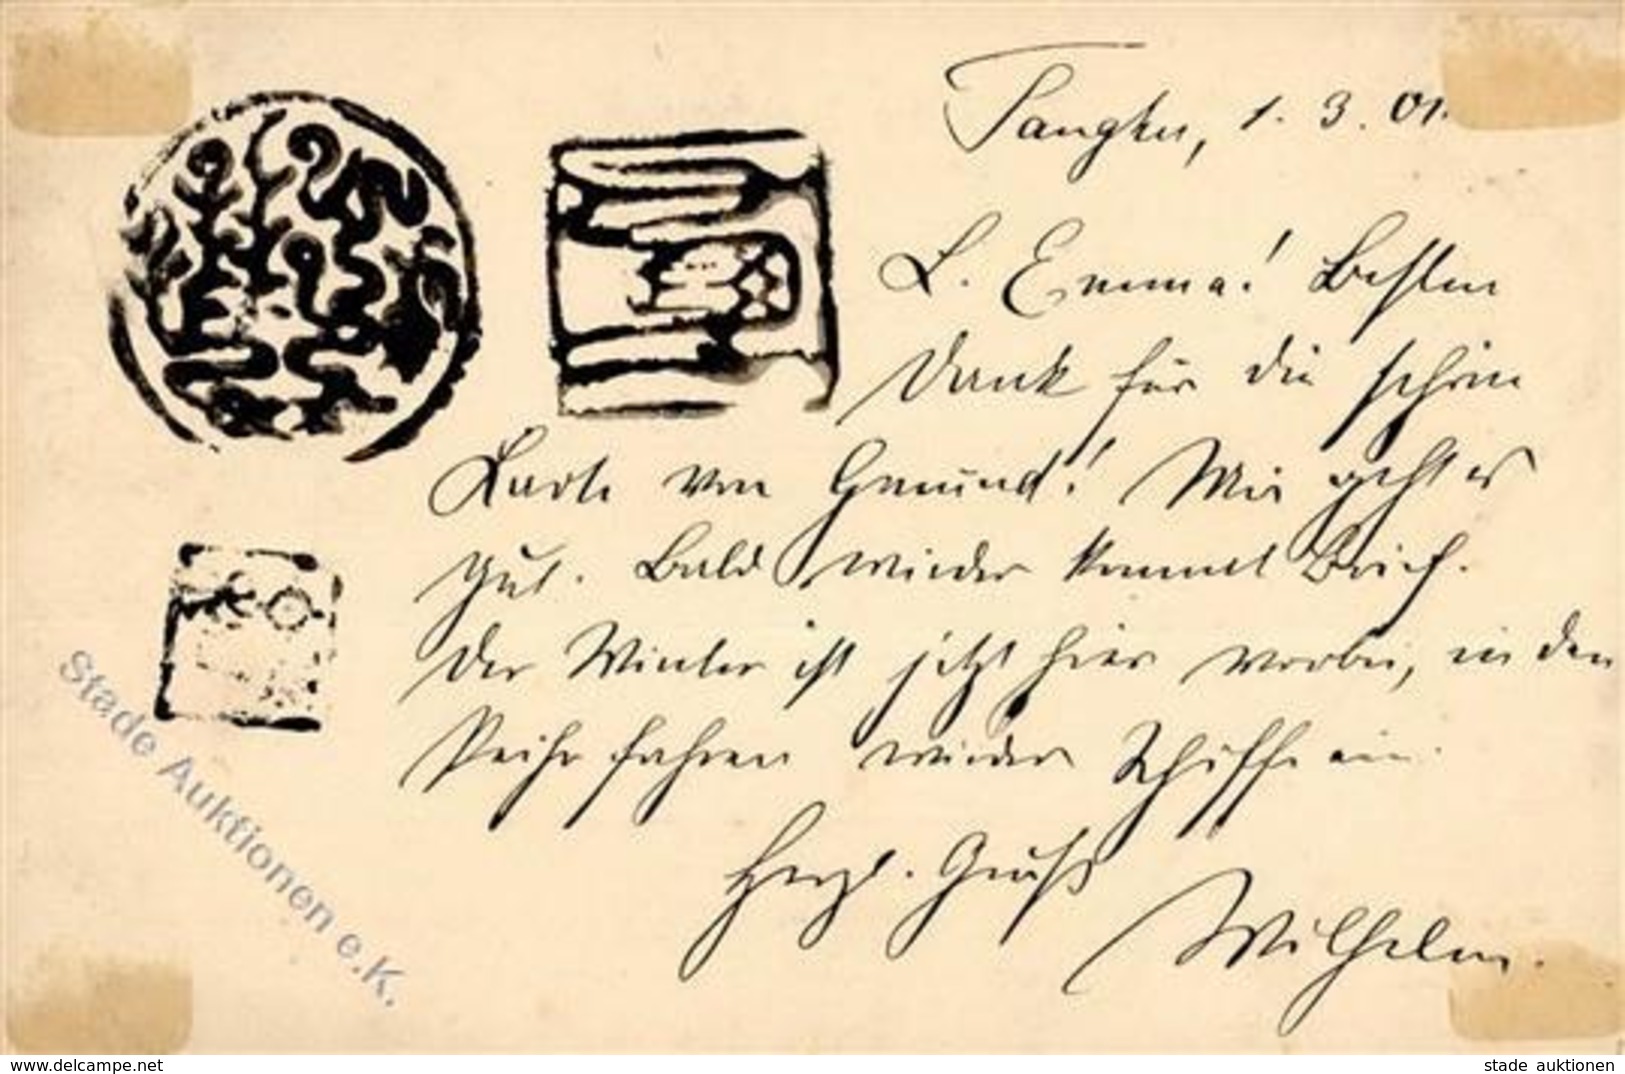 Tangku, 1. 3. 01.
L. Emma! Besten
Dank für die schöne
Karte von Gmünd! Mir geht es
gut. Bald wieder kommt Brief.
Der Winter ist jetzt hier vorbei, in den
Peiho fahren wieder Schiffe ein.
Herzl. Gruß
Wilhelm.
Stade Auktionen e.K.
www.delcampe.net
stade auktionen